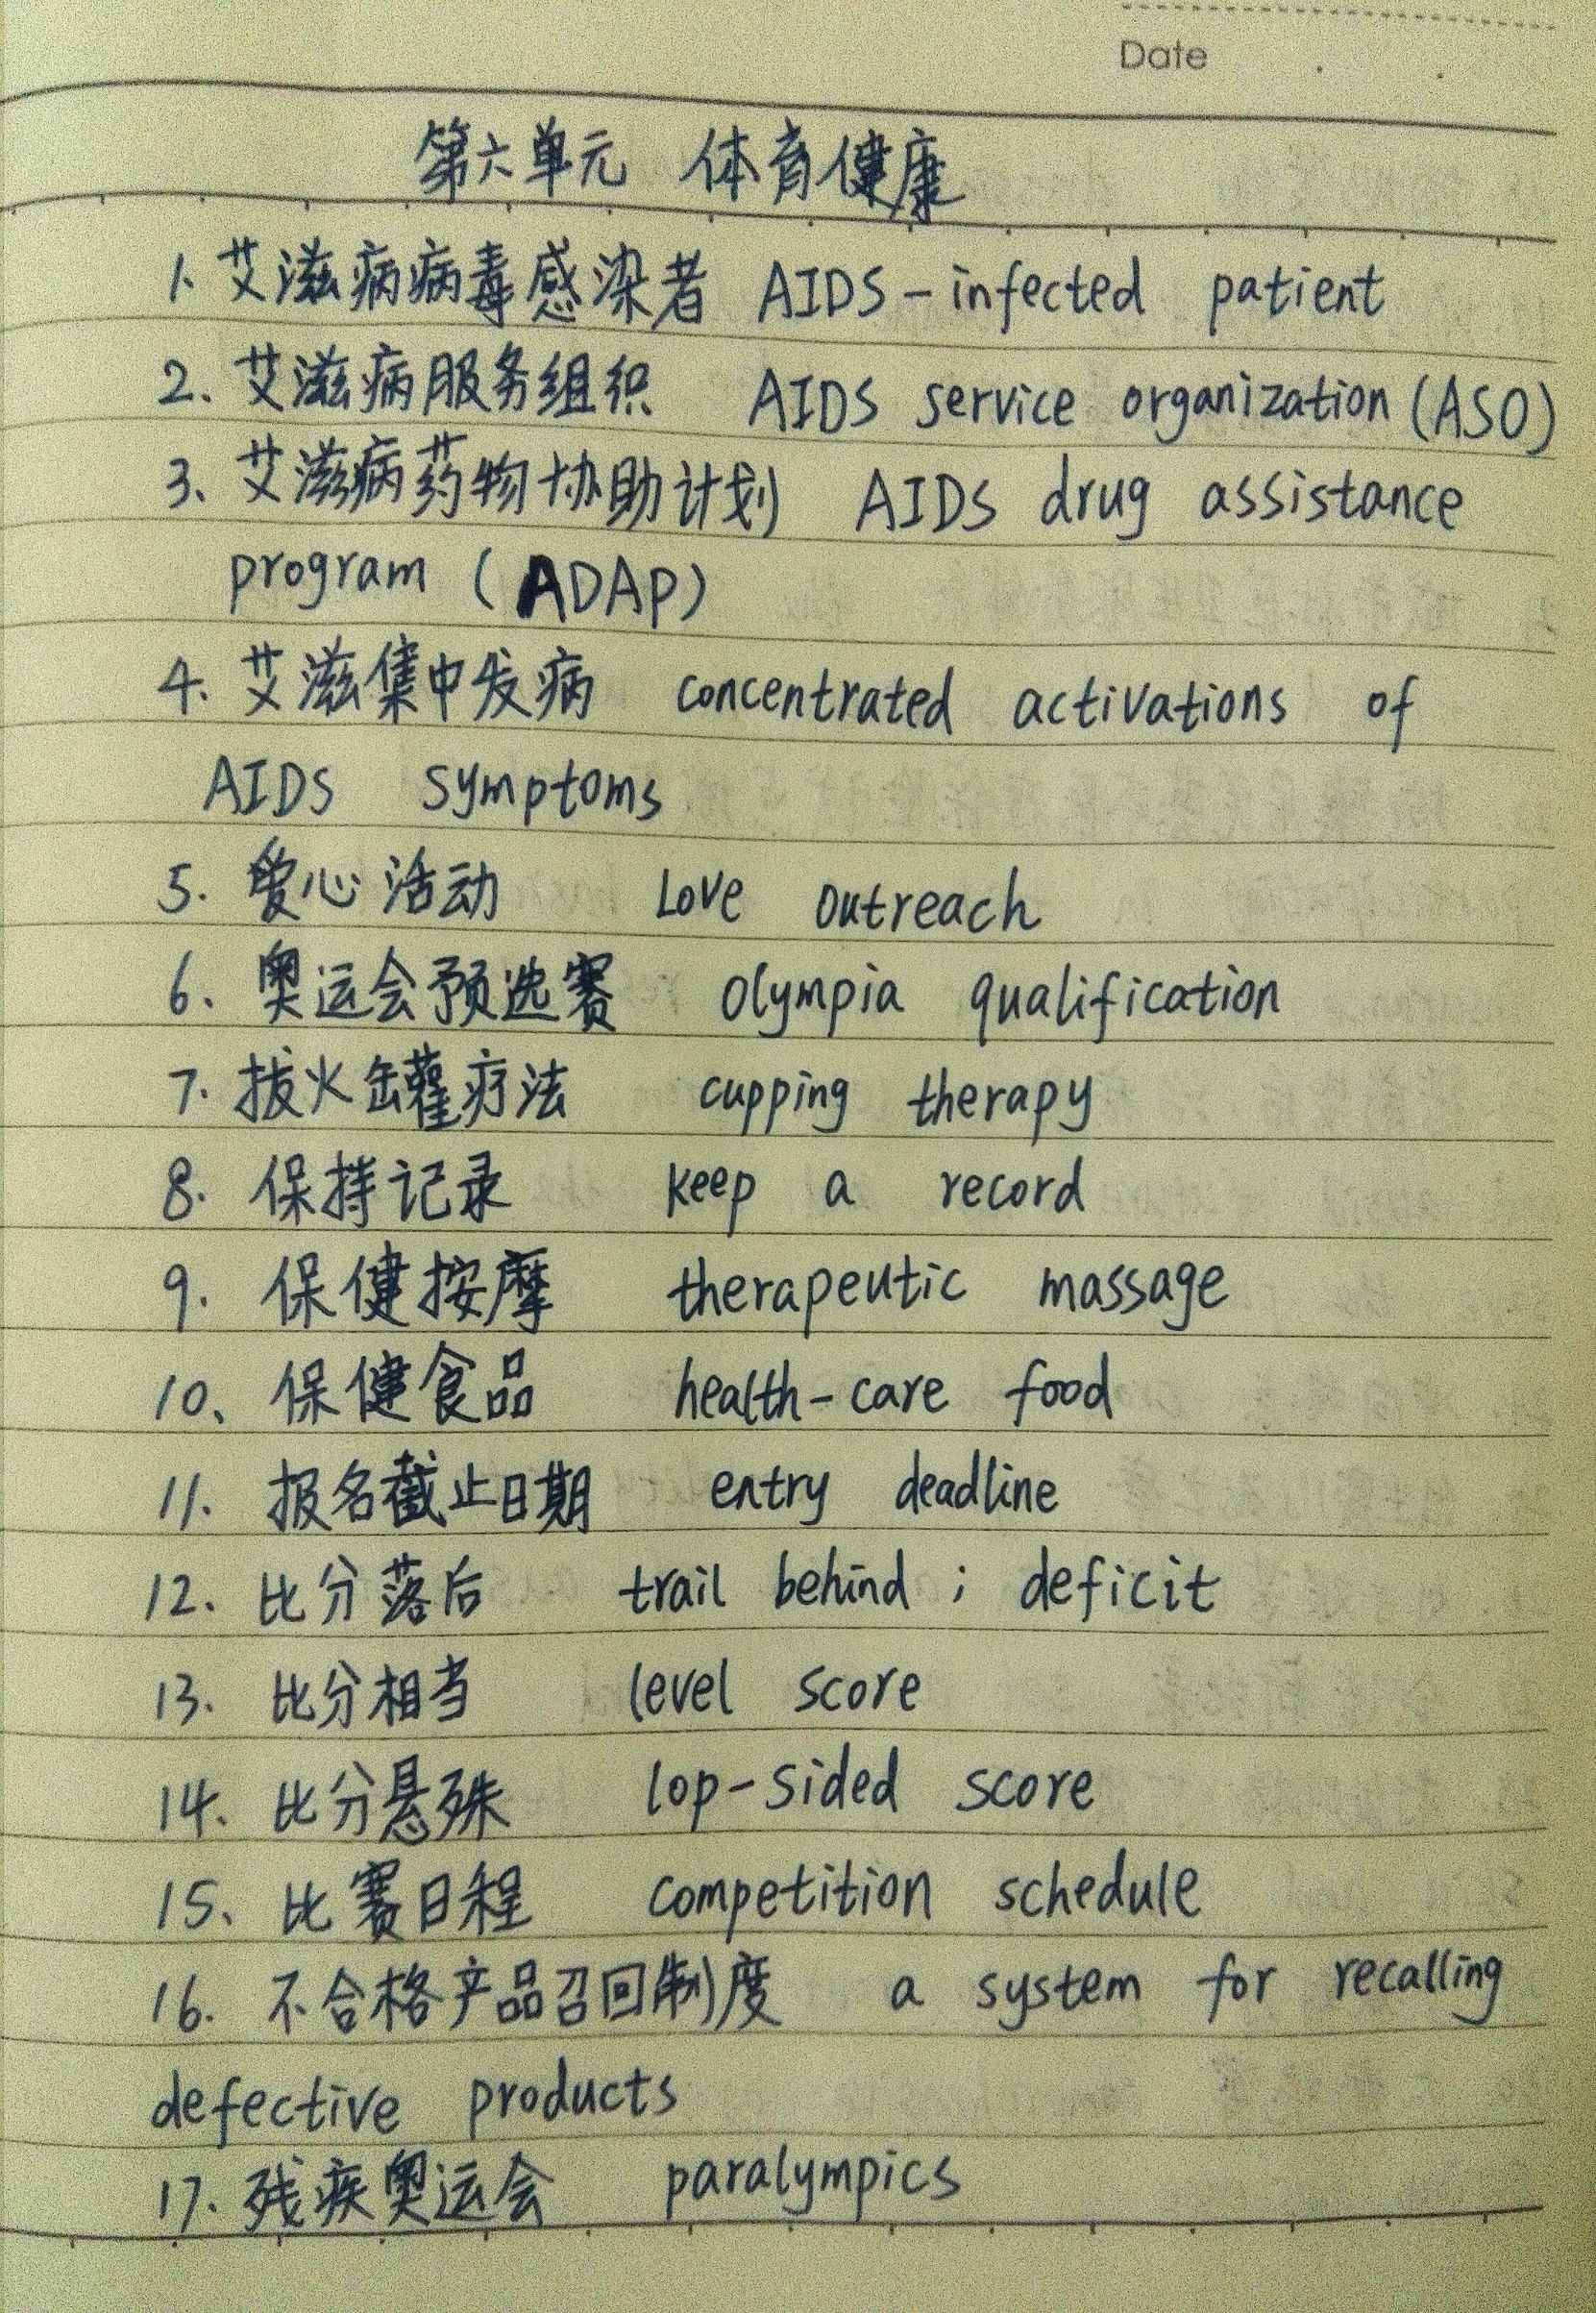 Date
第六单元 体育健康
1. 艾滋病病毒感染者 AIDS-infected patient
2. 艾滋病服务组织 AIDS service organization (ASO)
3. 艾滋病药物协助计划 AIDS drug assistance
program (ADAP)
4. 艾滋集中发病 concentrated activations of
AIDS symptoms
5. 爱心活动 Love outreach
6. 奥运会预选赛 Olympia qualification
7. 拔火罐疗法 cupping therapy
8. 保持记录 keep a record
9. 保健按摩 therapeutic massage
10. 保健食品 health-care food
11. 报名截止日期 entry deadline
12. 比分落后 trail behind ; deficit
13. 比分相当 level score
14. 比分悬殊 lop-sided score
15. 比赛日程 competition schedule
16. 不合格产品召回制度 a system for recalling
defective products
17. 残疾奥运会 paralympics